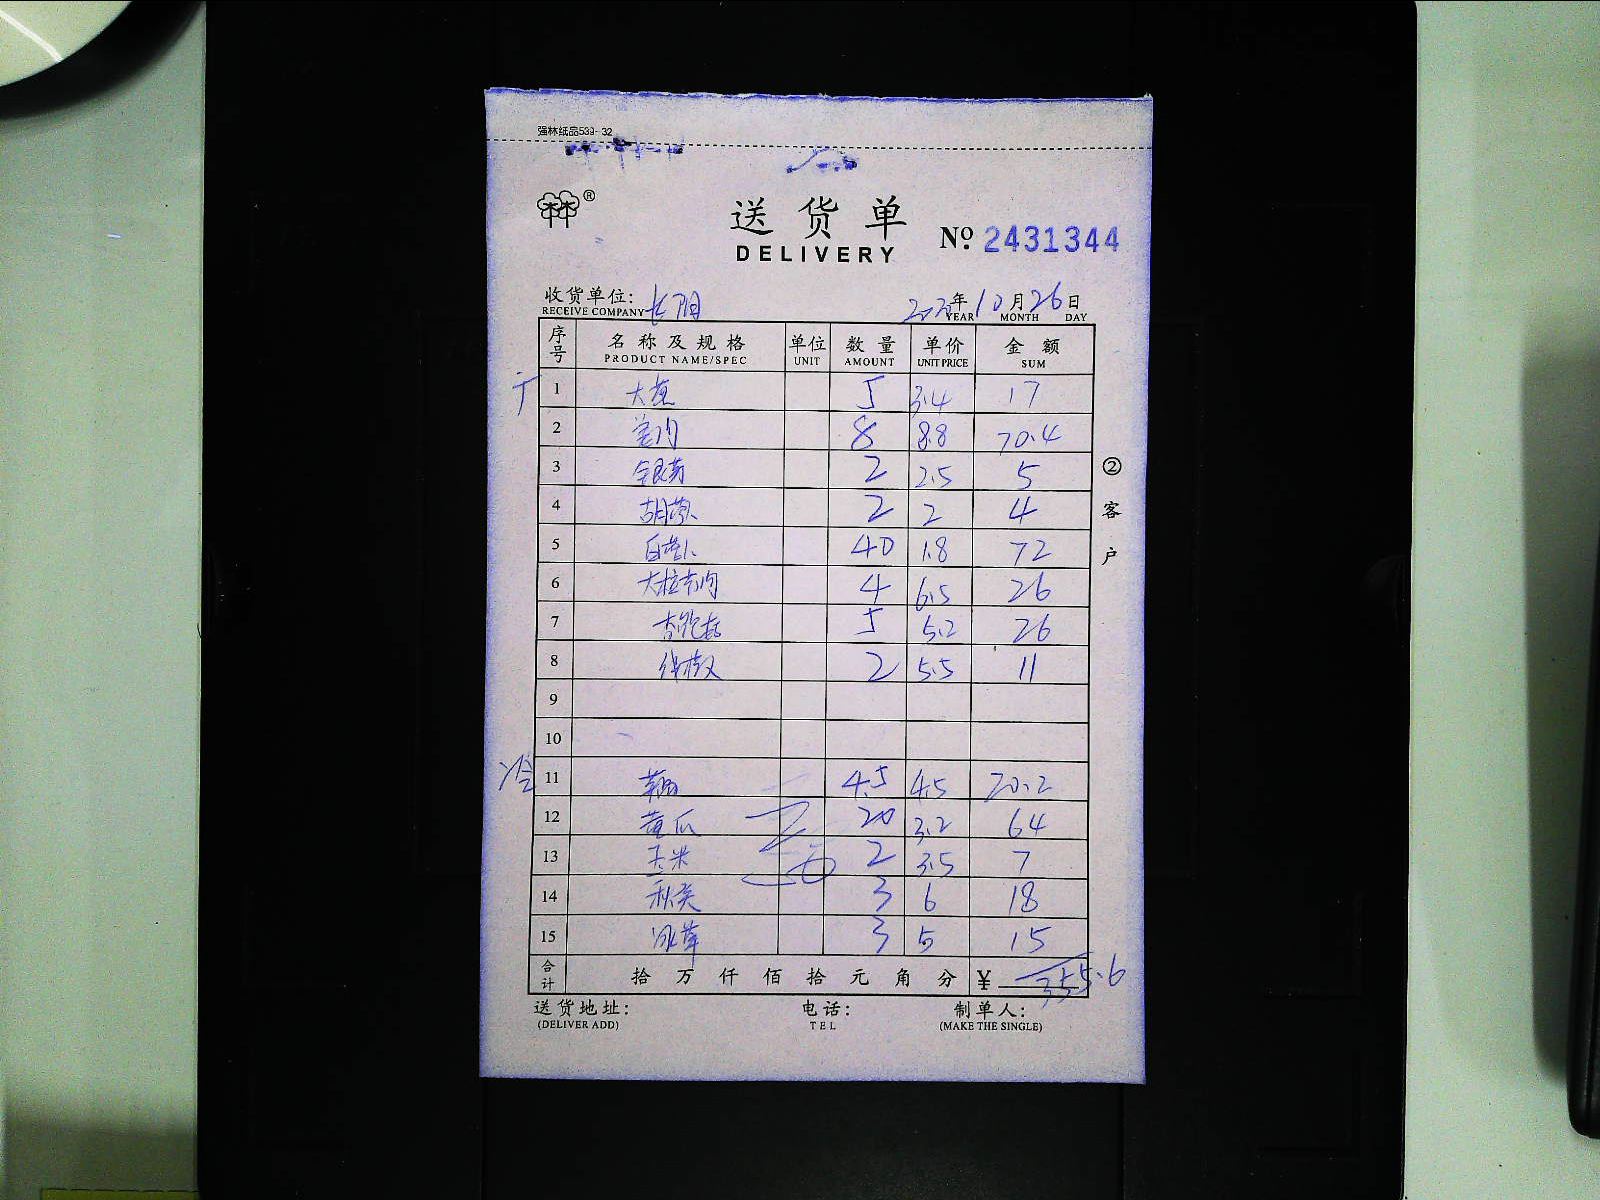 强林纸品539-32
®
送货单
DELIVERY
No. 2431344
收货单位: 长阳
RECEIVE COMPANY
2020年10月26日
YEAR MONTH DAY
序号 名称及规格 单位 数量 单价 金额
PRODUCT NAME/SPEC UNIT AMOUNT UNIT PRICE SUM
1 大葱 5 3.4 17
2 姜肉 8 8.8 70.4
3 2 2.5 5
4 胡萝卜 2 2 4
5 白萝卜 40 1.8 72
6 4 6.5 26
7 5 5.2 26
8 2 5.5 11
9
10
冷
11 4.5 4.5 20.2
12 黄瓜 20 3.2 64
13 玉米 2 3.5 7
14 秋葵 3 6 18
15 3 5 15
合计 拾万仟佰拾元角分 ¥ 355.6
送货地址: 电话: 制单人:
(DELIVER ADD) TEL (MAKE THE SINGLE)
②客户